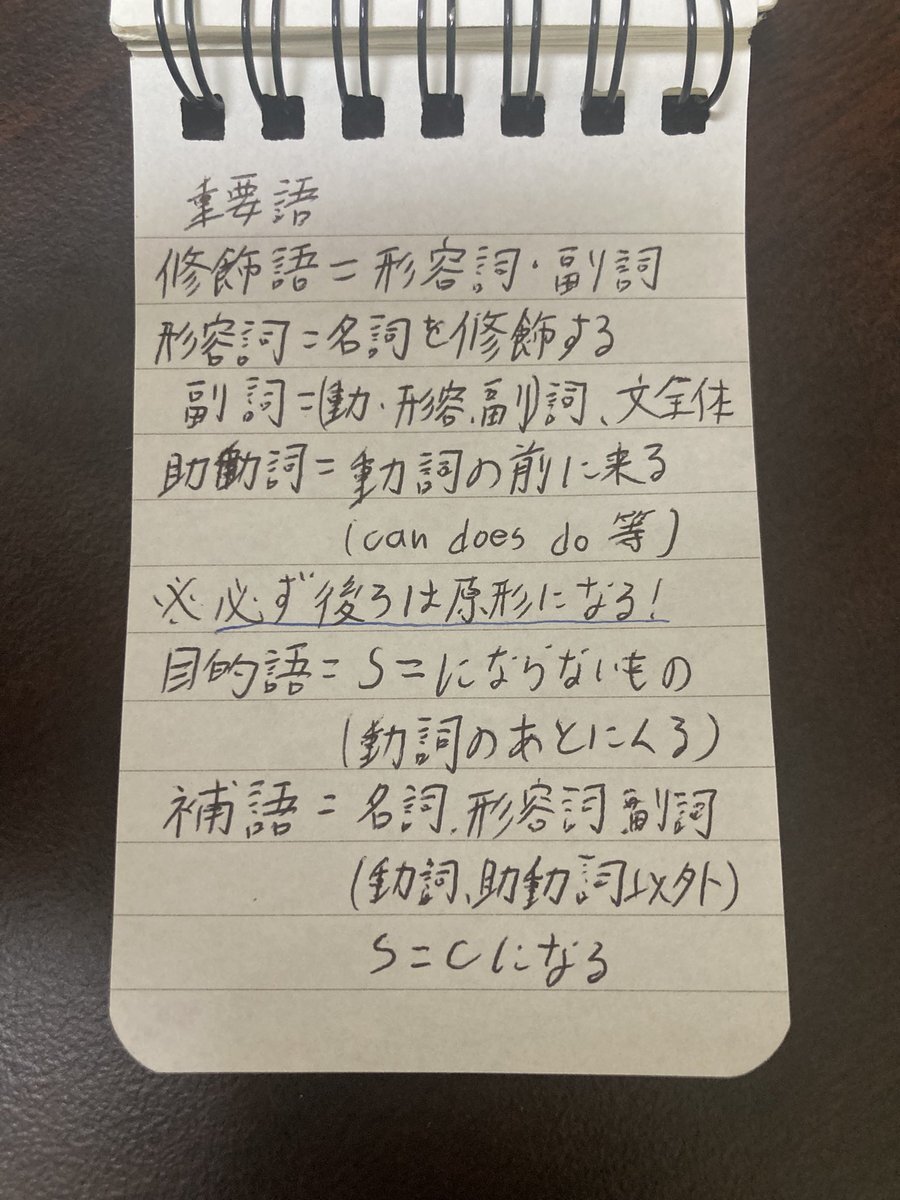 重要語
修飾語=形容詞・副詞
形容詞=名詞を修飾する
副詞=(動・形容、副)詞、文全体
助動詞=動詞の前に来る
(can does do 等)
※必ず後ろは原形になる!
目的語=S=にならないもの
(動詞のあとにくる)
補語=名詞、形容詞 副詞
(動詞、助動詞以外)
S=Cになる